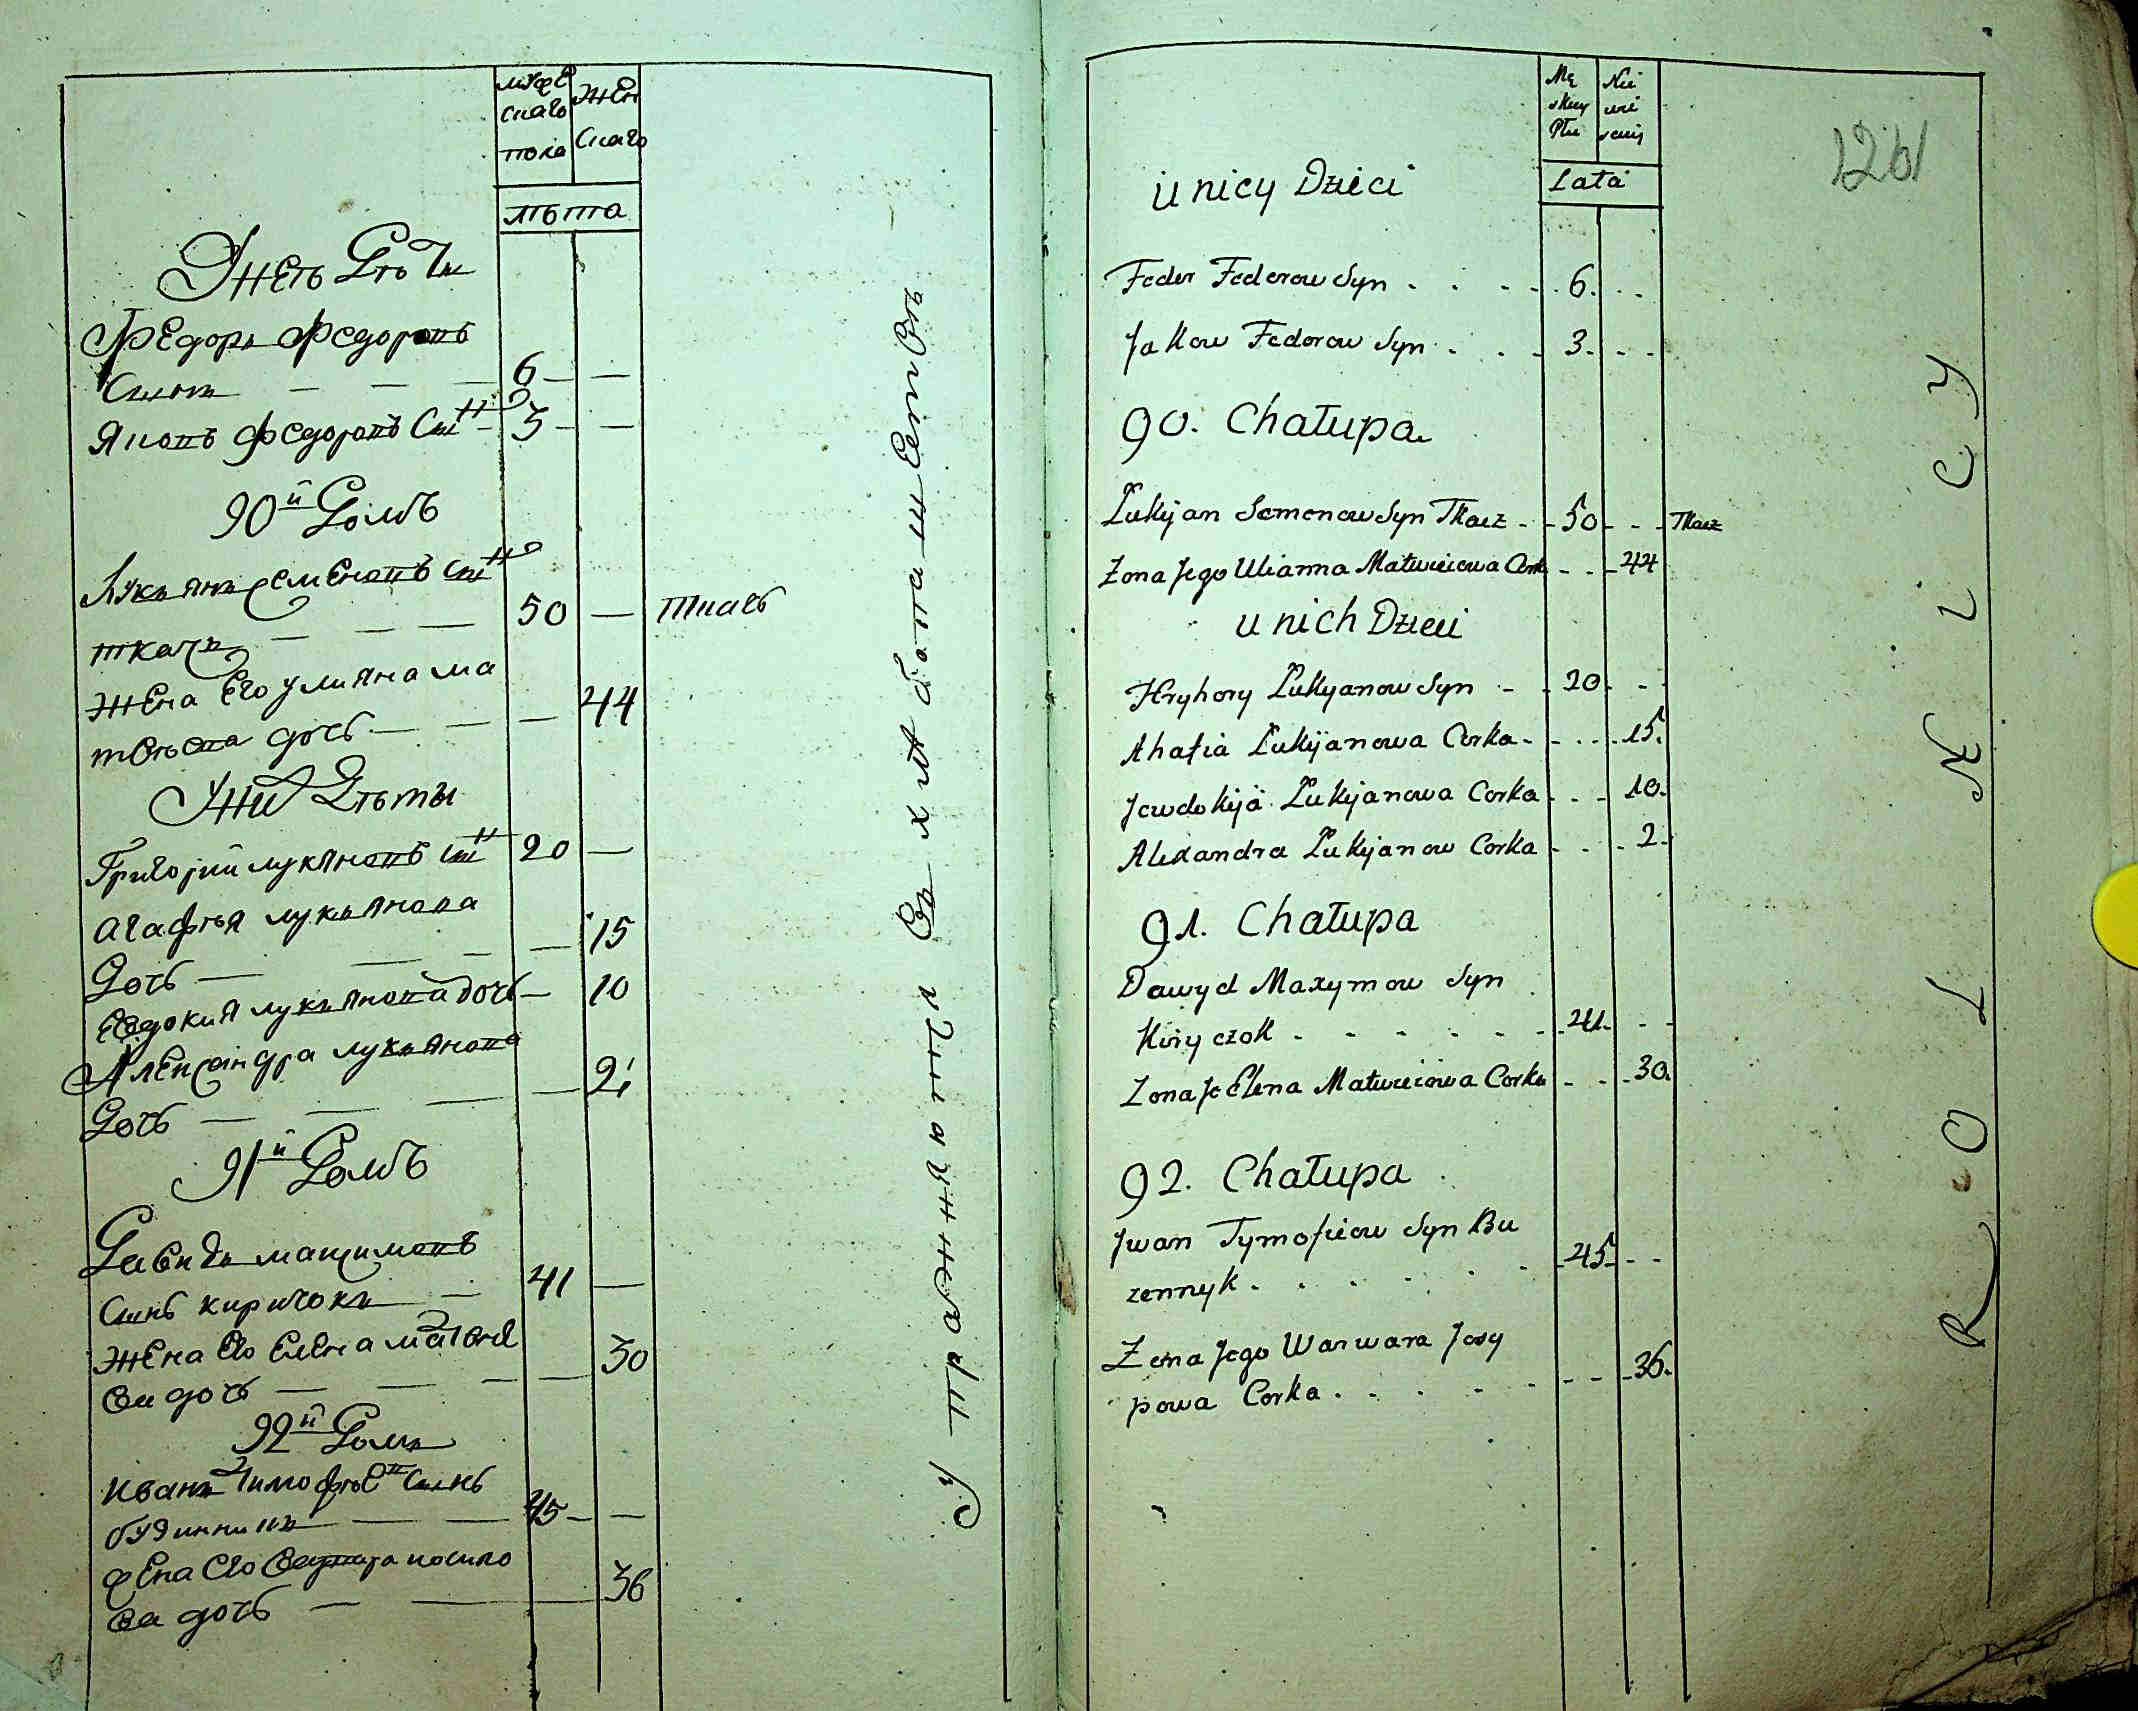 мужеска­го пола
женскаго
лѣта
У неѣ дѣти
Федоръ Федоровъ
сынъ — — — 6 — —
Яковъ Федоровъ сынъ — 3 — —
90й домъ
Лукьянъ Семеновъ сынъ
ткачь — — — 50 — ткачь
Жена его Улияна Ма
твѣева дочь — — — 44
У них дѣты
Григорий Лукяновъ сынъ 20 —
Агафѣя Лукьянова
дочь — — — — 15
Евдокия Лукьянова дочь — 10
Александра Лукьянова
дочь — — — — 2
91й домъ
Давидъ Максимовъ
сынъ Киричокъ — 41 —
Жена его Елена Матвѣе
ва дочь — — — — 30
92й домъ
Иванъ Тимофѣевъ сынъ
будинникъ — — — 45 — —
Жена его Варвара Иосипо
ва дочь — — 36
Мę
skiey
Płci
Nie
wie
sciej
Lata
126
U nicy Dzieci
Fedor Fedorow Syn . . . . . 6. . .
Jakow Fedorow Syn . . . . 3. . .
90. Chałupa
Łukijan Semenow Syn Tkacz . . 50 . . . Tkacz
Zona Jego Ulianna Matwieiowa Cork . . . 44
U nich Dzieci
Hryhory Łukyanow Syn . . 20. . .
Ahafia Łukijanowa Corka . . . . . 15.
Jewdokijä Łukijanowa Corka . . . 10.
Alexandra Łukijanow Corka . . . . 2.
91. Chałupa
Dawyd Maxymow Syn
Kiryczok . . . . . . . 41. . .
Zona Je Elena Matwieiowa Corka . . . 30.
92. Chałupa
Jwan Tymofieiow Syn Bu
zennyk . . . . . . 45. . .
Zona Jego Warwara Josy
powa Corka . . . . . . . . 36.
ROLNICY